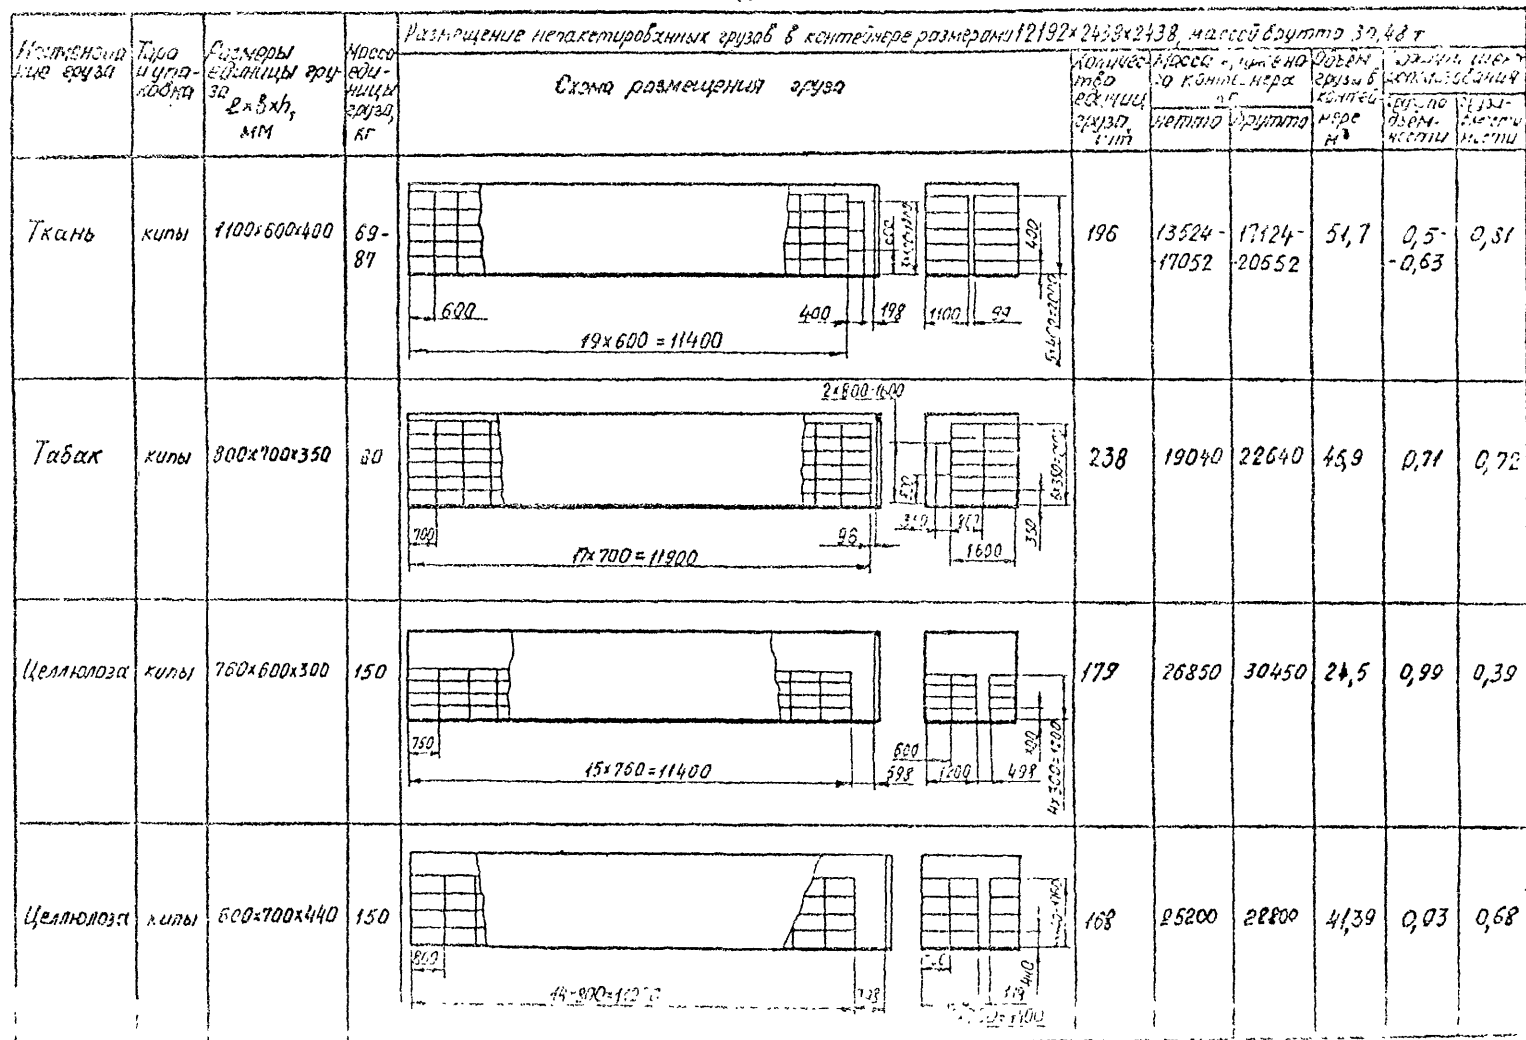 Размещение непакетированных грузов в контейнере размерами 12192×2438×2438, массой брутто 30,48 т
Наименова
ние груза
Тара
и упа-
ковка
Размеры
единицы гру
за
l×b×h,
мм
Масса
еди-
ницы
груза,
кг
Схема размещения груза
Количес-
тво
единиц
груза,
шт.
Масса
нетто
брутто
Объем
груза в
контей-
нере
м³
грузо
подъем-
ности
Ткань
кипы
1100×600×400
69-
87
600
400
198
19×600=11400
1100
99
400
5×400=2000
196
13524-
-17052
17124-
-20652
51,7
0,5-
-0,63
0,81
Табак
кипы
800×700×350
80
2×800=1600
700
96
17×700=11900
350
800
1600
350
238
19040
22640
46,9
0,71
0,72
Целлюлоза
кипы
760×600×300
150
760
15×760=11400
598
600
1200
498
300
4×300=1200
179
26850
30450
24,5
0,99
0,39
Целлюлоза
кипы
800×700×440
150
800
440
168
25200
28800
41,39
0,93
0,68